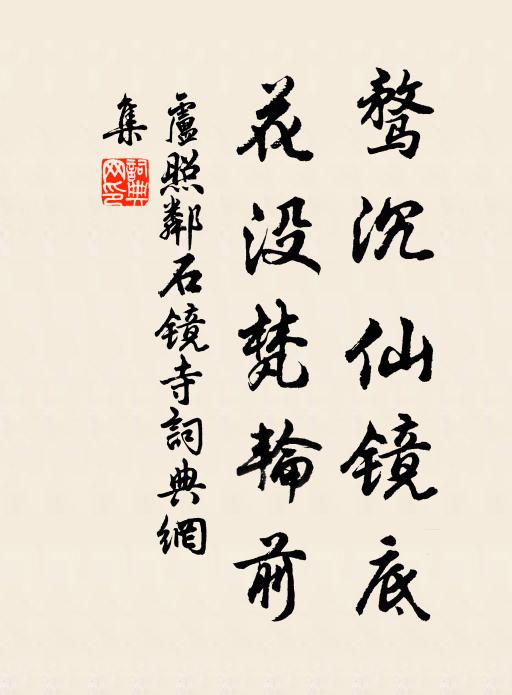 鹜沉仙镜底
花没梵輪前
盧照鄰石镜寺詞典網
集
詞典網印